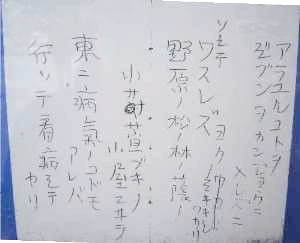 アラユルコトヲ
ジブンヲカンジョウニ
入レズニ
ヨク
ミキキシワカリ
ソシテ
ワスレズ
野原ノ松ノ林ノ蔭ノ
小サナ萱ブキノ
小屋ニヰテ
東ニ病氣ノコドモ
アレバ
行ッテ看病シテ
ヤリ